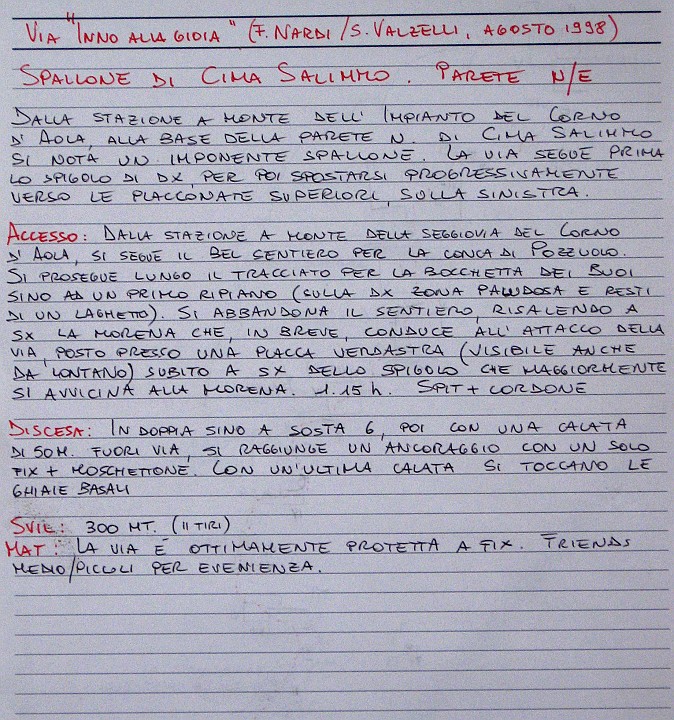 VIA "INNO ALLA GIOIA" (F. NARDI / S. VALZELLI, AGOSTO 1998)
SPALLONE DI CIMA SALIMMO. PARETE N/E
DALLA STAZIONE A MONTE DELL'IMPIANTO DEL CORNO
D'AOLA, ALLA BASE DELLA PARETE N. DI CIMA SALIMMO
SI NOTA UN IMPONENTE SPALLONE. LA VIA SEGUE PRIMA
LO SPIGOLO DI DX, PER POI SPOSTARSI PROGRESSIVAMENTE
VERSO LE PLACCONATE SUPERIORI, SULLA SINISTRA.
ACCESSO: DALLA STAZIONE A MONTE DELLA SEGGIOVIA DEL CORNO
D'AOLA, SI SEGUE IL BEL SENTIERO PER LA CONCA DI POZZUOLO.
SI PROSEGUE LUNGO IL TRACCIATO PER LA BOCCHETTA DEI BUOI
SINO AD UN PRIMO RIPIANO (SULLA DX ZONA PALUDOSA E RESTI
DI UN LAGHETTO). SI ABBANDONA IL SENTIERO, RISALENDO A
SX LA MORENA CHE, IN BREVE, CONDUCE ALL'ATTACCO DELLA
VIA, POSTO PRESSO UNA PLACCA VERDASTRA (VISIBILE ANCHE
DA LONTANO) SUBITO A SX DELLO SPIGOLO CHE MAGGIORMENTE
SI AVVICINA ALLA MORENA. 1.15 h. SPIT + CORDONE
DISCESA: IN DOPPIA SINO A SOSTA 6, POI CON UNA CALATA
DI 50 M. FUORI VIA, SI RAGGIUNGE UN ANCORAGGIO CON UN SOLO
FIX + MOSCHETTONE. CON UN'ULTIMA CALATA SI TOCCANO LE
GHIAIE BASALI
SVIL: 300 MT. (11 TIRI)
MAT: LA VIA È OTTIMAMENTE PROTETTA A FIX. FRIENDS
MEDIO/PICCOLI PER EVENIENZA.